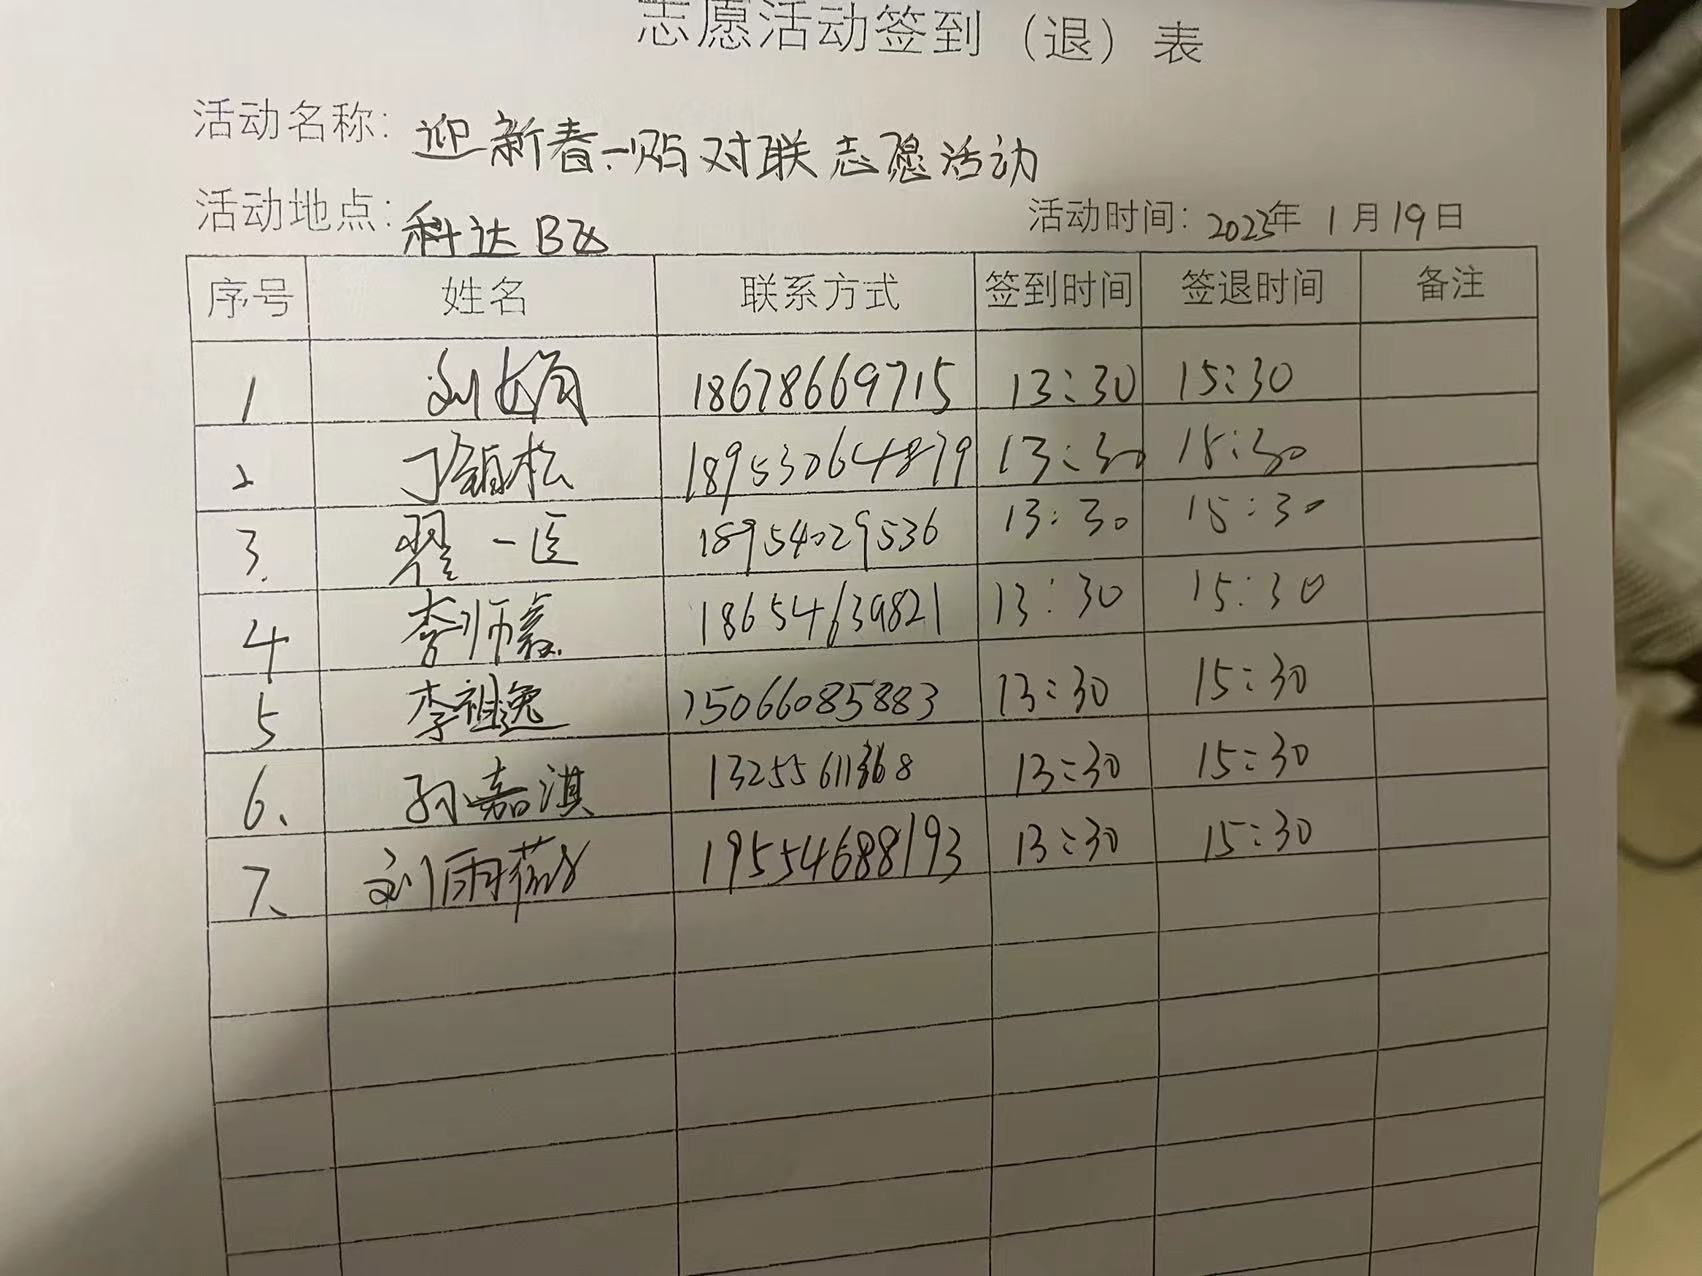 志愿活动签到（退）表
活动名称: 迎新春、贴对联志愿活动
活动地点: 科达B区
活动时间: 2023年 1月19日
序号 姓名 联系方式 签到时间 签退时间 备注
1 刘 18678669715 13:30 15:30
2 丁 松 18953064879 13:30 15:30
3. 翟一臣 18954029536 13:30 15:30
4 李师 18654639821 13:30 15:30
5 李祖逸 15066085883 13:30 15:30
6、 孙嘉淇 13255611368 13:30 15:30
7、 刘雨薇 19554688193 13:30 15:30